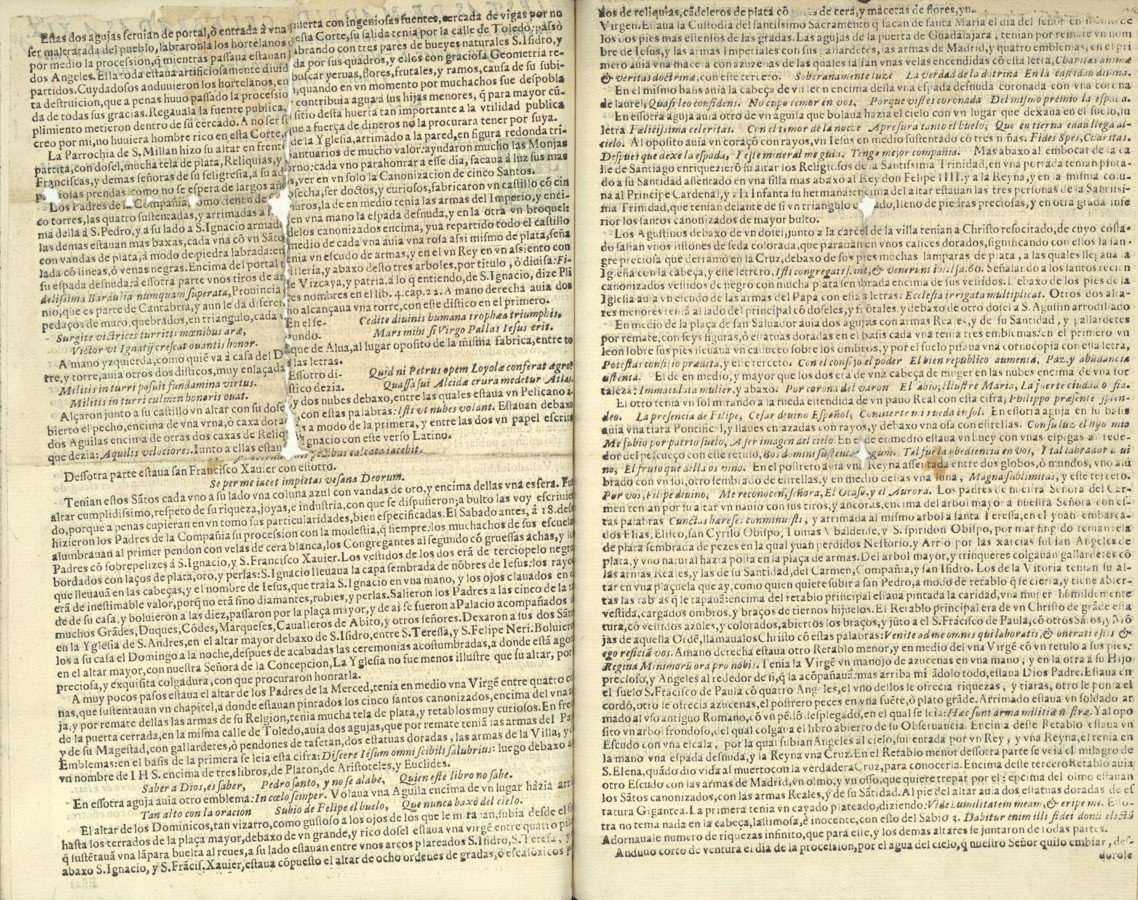 Estas dos agujas seruian de portal, ò entrada à vna huerta con ingeniosas fuentes, cercada de vigas por no
ser maltratada del pueblo, labraronla los hortelanos desta Corte, su salida tenia por la calle de Toledo, passò
por medio la procession, q̃ mientras passaua estauan labrando con tres pares de bueyes naturales S. Isidro, y
dos Angeles. Ella toda estaua artificiosamente diuidida por sus quadros, y ellos con graciosa Geometria re-
partidos. Cuydadosos anduuieron los hortelanos, en buscar yeruas, flores, frutales, y ramos, causa de su subi-
ta destruicion, que a penas huuo passado la procession, quando en vn momento por muchachos fue despobla
da de todas sus gracias. Regauala la fuente publica, contribuia agua à sus hijas menores, q̃ para mayor cũ-
plimiento metieron dentro de su cercado. A no ser sitio desta huerta tan importante a la vtilidad publica
creo por mi, no huuiera hombre rico en esta Corte, que a fuerça de dineros no la procurara tener por suya.
La Parrochia de S. Millan hizo su altar en frente de la Yglesia, arrimado a la pared, en figura redonda tri-
partita, con dosel, mucha tela de plata, Reliquias, y santuarios de mucho valor: ayudaron mucho las Monjas
Franciscas, y demas señoras de su feligresia, a su adorno; cada vna por ahonrar a este dia, sacaua à luz sus mas
preciosas prendas como no se espera de largos años ver en vn solo la Canonizacion de cinco Santos.
Los Padres de la Compañia como tienen de sospecha, ser doctos, y curiosos, fabricaron vn castillo cõ cin
co torres, las quatro sustentadas, y arrimadas a los muros, la de en medio tenia las armas del Imperio, y enci-
ma della à S. Pedro, y a su lado a S. Ignacio armado en vna mano la espada desnuda, y en la otra vn broquel:
las demas estauan mas baxas, cada vna cõ vn Sãto delos canonizados, encima, yua repartido todo el castillo
con vandas de plata, à modo de piedra labrada: en medio de cada vna auia vna rosa assi mismo de plata, seña
lada cõ lineas, ò venas negras. Encima del portal tenia vn escudo de armas, y en el vn Rey en assiento con
su espada desnuda: à essotra parte vnos tiros de artilleria, y abaxo destos tres arboles, por titulo, ò diuisa: Fi-
delissima Bardulia numquam superata, Prouincia de Vizcaya, y patria, à lo q̃ entiendo, de S. Ignacio, dize Pli
nio, que es parte de Cantabria, y assi le dà diferentes nombres en el lib. 4. cap. 22. A mano derecha auia dos
pedaços de maro, quebrados, en triangulo, cada vno alcançaua vna torre, con este distico en el primero.
Surgite victrices turriti mœnibus aræ, Cedite diuinis humana trophæa triumphis,
Victor vt Ignatij crescat ouantis honor. En el se-gundo. Mars mihi si Virgo Pallas Iesus erit.
A mano yzquierda, como quiẽ và a casa del Duque de Alua, al lugar oposito de la misma fabrica, entre to
rre, y torre, auia otros dos disticos, muy enlaçadas las letras.
Militis in turri posuit fundamina virtus. Quid ni Petrus opem Loyolæ conferat agre
Militis in turri culmen honoris ouat. Essotro di-stico dezia. Quassa sui Alcidæ crura medetur Atlas.
Alçaron junto a su castillo vn altar con su dosel, y dos nubes debaxo, entre las quales estaua vn Pelicano a-
bierto el pecho, encima de vna vrna, ò caxa dorada con estas palabras: Isti vt nubes volant. Estauan debaxo
dos Aguilas encima de otras dos caxas de Reliquias a modo de la primera, y entre las dos vn papel escrito
que dezia: Aquilis velociores. Iunto a ellas estaua S. Ignacio con este verso Latino.
pedibus calcata iacebit.
Dessotra parte estaua san Francisco Xauier con essotro.
Se per me iacet impietas vesana Deorum.
Tenian estos Sãtos cada vno a su lado vna coluna azul con vandas de oro, y encima dellas vna esfera. Fue
altar cumplidissimo, respeto de su riqueza, joyas, e industria, con que se dispusieron: a bulto las voy escriuiẽ
do, porque a penas cupieran en vn tomo sus particularidades, bien especificadas. El Sabado antes, à 18. deste
hizieron los Padres de la Compañia su procession con la modestia, q̃ siempre: los muchachos de sus escuelas
alumbrauan al primer pendon con velas de cera blanca, los Congregantes al segundo cõ gruessas achas, y los
Padres cõ sobrepelizes à S. Ignacio, y S. Francisco Xauier. Los vestidos de los dos erã de terciopelo negro
bordados con laços de plata, oro, y perlas: S. Ignacio lleuaua la capa sembrada de nõbres de Iesus: los rayos
que lleuauã en las cabeças, y el nombre de Iesus, que traia S. Ignacio en vna mano, y los ojos clauados en el
erã de inestimable valor, porq̃ no erã sino diamantes, rubies, y perlas. Salieron los Padres a las cinco de la tar
de de su casa, y boluieron a las diez, passaron por la plaça mayor, y de ai se fueron a Palacio acompañados de
muchos Grãdes, Duques, Cõdes, Marqueses, Caualleros de Abito, y otros señores. Dexaron a sus dos Santos
en la Yglesia de S. Andres, en el altar mayor debaxo de S. Isidro, entre S. Teressa, y S. Felipe Neri. Boluieron
los a su casa el Domingo a la noche, despues de acabadas las ceremonias acostumbradas, a donde està agora
en el altar mayor, con nuestra Señora de la Concepcion. La Yglesia no fue menos illustre que su altar, por
preciosa, y exquisita colgadura, con que procuraron honrarla.
A muy pocos passos estaua el altar de los Padres de la Merced, tenia en medio vna Virgẽ entre quatro co
nas, que sustentauan vn chapitel, a donde estauan pintados los cinco santos canonizados, encima del vna a
ja, y por remate dellas las armas de su Religion, tenia mucha tela de plata, y retablos muy curiosos. En frente
de la puerta cerrada, en la misma calle de Toledo, auia dos agujas, que por remate teniã las armas del Papa
y de su Magestad, con gallardetes, ò pendones de tafetan, dos estatuas doradas, las armas de la Villa, y
Emblemas: en el basis de la primera se leia esta cifra: Discere Iesum omni scibili salubrius: luego debaxo auia
vn nombre de I H S. encima de tres libros, de Platon, de Aristoteles, y Euclides.
Saber a Dios, es saber, Pedro santo, y no se alabe, Quien este libro no sabe.
En essotra aguja auia otro emblema: In cœlo semper. Volaua vna Aguila encima de vn lugar hàzia arriba
Tan alto con la oracion Subio de Felipe el buelo, Que nunca baxò del cielo.
El altar de los Dominicos, tan vizarro, como gustoso a los ojos de los que le mirauan, subia desde el suelo
hasta los terrados de la plaça mayor, debaxo de vn grande, y rico dosel estaua vna virgẽ entre quatro pilares
q̃ sustẽtauã vna lãpara buelta al reues, a su lado estauan entre vnos arcos plateados S. Isidro, S. Teresa, y
abaxo S. Ignacio, y S. Frãcis. Xauier, estaua cõpuesto el altar de ocho ordenes de gradas, ò escalõzicos por
Estas
nos de reliquias, cãdeleros de plata cõ de cera, y macetas de flores, yn
Virgen. Estaua la Custodia del santissimo Sacramento q̃ sacan de santa Maria el dia del señor en medio de
los dos pies mas essentos de las gradas. Las agujas de la puerta de Guadalajara, tenian por remate vn nom
bre de Iesus, y las armas Imperiales con sus gallardetes, las armas de Madrid, y quatro emblemas, en el pri
mero auia vna maceta con azuzenas de las quales salian vnas velas encendidas cõ esta letra, Charitas animæ
& veritas doctrinæ, con este tercero. Soberanamente luze La verdad de la dotrina En la castidad diuina.
En el mismo basis auia la cabeça de vn leon encima de vna espada desnuda coronada con vna corona
de laurel, Quasi leo confidens. No cupo temor en vos, Porque oistes coronada Del mismo premio la espada.
En essotra aguja auia otro de vn aguila que bolaua hàzia el cielo con vn lugar que dexaua en el suelo, su
letra Fælitissima celeritas. Con el timor de la noche Apresura tanto el buelo, Que en tierna edad llega al
cielo. Al oposito auia vn coraçõ con rayos, vn Iesus en medio sustentado de tres niñas. Fides Spes Charitas.
Despues que dexè la espada, Y este mineral me guia, Tengo mejor compañia. Mas abaxo al embocar de la ca
lle de Santiago enriquezierõ su altar los Religiosos de la Santissima Trinidad, en vna portada tenian pinta-
do a su Santidad assentado en vna silla mas abaxo al Rey don Felipe IIII. y a la Reyna, y en la misma colu
na al Principe Cardenal, y la Infanta su hermana: encima del altar estauan las tres personas de la Santissi-
ma Trinidad, que tenian delante de si vn triangulo dorado, lleno de piedras preciosas, y en otra grada infe
rior los santos canonizados de mayor bulto.
Los Agustinos debaxo de vn dosel, junto a la carcel de la villa tenian a Christo resucitado, de cuyo costa-
do salian vnos listones de seda colorada, que parauan en vnos calices dorados, significando con ellos la san-
gre preciosa que derramò en la Cruz, debaxo de sus pies muchas lamparas de plata, a las quales llegaua la
Iglesia con la cabeça, y este letrero. Isti congregati sunt, & venerunt in Issa. 60. Señalando a los santos recien
canonizados vestidos de negro con mucha plata sembrada encima de sus vestidos. Debaxo de los pies de la
Iglesia auia vn escudo de las armas del Papa con estas letras: Ecclesia irrigata multiplicat. Otros dos alta-
res menores teniã al lado del principal cõ doseles, y frõtales, y debaxo de otro dosel a S. Agustin arrodillado
En medio de la plaça de san Saluador auia dos agujas con armas Reales, y de su Santidad, y gallardetes
por remate, con seys figuras, ò estatuas doradas en el basis cada vna tenia tres emblemas: en el primero vn
leon sobre sus pies lleuaua vn caliz sobre los ombros, y por el suelo tiraua vna cornucopia con esta letra,
Potestas consilio prædita, y este tercero. Con el consejo el poder El bien republico aumenta, Paz, y abũdancia
sustenta. El de en medio, y mayor que los dos era de vna cabeça de muger en las nubes encima de vna for
taleza: Immaculata mulier, y abaxo. Por corona del varon El labio, illustre Maria, La fuerte ciudad os fia.
El otro tenia vn sol mirando a la rueda estendida de vn pauo Real con esta cifra; Philippo præsente splen-
deo. La presencia de Filipe, Cesar diuino Español, Conuierte mi rueda en sol. En essotra aguja en su basis
auia vna tiara Pontifical, y llaues en azadas con rayos, y debaxo vna osa con estrellas. Consul luz el ojo mio
Me subio por patrio suelo, A ser imagen del cielo. En el de en medio estaua vn buey con vnas espigas al rede-
dor del pescueço con este retulo, Bos domini sustent ægum. Tal fue la obediencia en vos, Y tal labrador diui
no, El fruto que dellà os vino. En el postrero auia vna Reyna assentada entre dos globos, ò mundos, vno alũ
brado con vn sol, otro sembrado de estrellas, y en medio della vna luna, Magna sublimitas, y este tercero.
Por vos, Filipe diuino, Me reconocen, señora, El Ocaso, y el Aurora. Los padres de nuestra Señora del Car-
men tenian por su altar vn nauio con sus tiros, y ancoras, encima del arbol mayor a nuestra Señora con es-
tas palabras Cunctas hæreses comminuisti, y arrimada al mismo arbol a santa Teressa, en el yuan embarca-
dos Elias, Eliseo, san Cyrilo Obispo, Tomas Vbaldense, y S. Spiridon Obispo, por mar fingido tenian tela
de plata sembrada de pezes en la qual yuan perdidos Nestorio, y Arrio por las xarcias subian Angeles de
plata, y vno natural hàzia posta en la plaça de armas. Del arbol mayor, y trinqueres colgauan gallardetes cõ
las armas Reales, y las de su Santidad, del Carmen, Compañia, y san Isidro. Los de la Vitoria tenian su al-
tar en vna plaçuela que ay, como quien quiere subir a san Pedro, a modo de retablo q̃ se cierra, y tiene abier-
tas las tablas q̃ le tapauã: encima del retablo principal estaua pintada la caridad, vna muger humildemente
vestida, cargados ombros, y braços de tiernos hijuelos. El Retablo principal era de vn Christo de grãde esta
tura, cõ vestidos azules, y colorados, abiertos los braços, y jũto a el S. Frãcisco de Paula, cõ otros Sãtos, y Mõ
jas de aquella Ordẽ, llamaualos Christo cõ estas palabras: Venite ad me omnes qui laboratis, & onerati estis &
ego reficiã vos. A mano derecha estaua otro Retablo menor, y en medio del vna Virgẽ cõ vn retulo a sus pies:
Regina Minimorũ ora pro nobis. Tenia la Virgẽ vn manojo de azucenas en vna mano, y en la otra à su Hijo
precioso, y Angeles al rededor de si, q̃ la acopañauã: mas arriba mirãdolo todo, estaua Dios Padre. Estaua en
el suelo S. Frãcisco de Paula cõ quatro Angeles, el vno dellos le ofrecia riquezas, y tiaras, otro le ponia el
cordõ, otro le ofrecia azucenas, el postrero pezes en vna fuẽte, ò plato grãde. Arrimado estaua vn soldado ar
mado al vso antiguo Romano, cõ vn pẽdõ desplegado, en el qual se leia: Hæc sunt arma militiæ nostræ. Y al opo
sito vn arbol frondoso, del qual colgaua el libro abierto de su Obseruancia. Encima deste Retablo estaua vn
Escudo con vna escala, por la qual subian Angeles al cielo, sustentada por vn Rey, y vna Reyna, el tenia en
la mano vna espada desnuda, y la Reyna vna Cruz. En el Retablo menor dessotra parte se veia el milagro de
S. Elena, quãdo dio vida al muerto con la verdadera Cruz, para conocerla. Encima deste tercero Retablo auia
otro Escudo con las armas de Madrid, vn olmo, y vn osso, que quiere trepar por el: encima del olmo estauan
los Sãtos canonizados, con las armas Reales, y de su Sãtidad. Al pie del altar auia dos estatuas doradas de es
tatura Gigantea. La primera tenia vn cayado plateado, diziendo: Vide humilitatem meam, & eripe me. Esso-
tra no tema nada en la cabeça, lastimosa, è inocente, con esto del Sabio 3. Dabitur enim illi fidei donũ electũ
Adornauale numero de riquezas infinito, que para este, y los demas altares se juntaron de todas partes.
Anduuo corto de ventura el dia de la procession, por el agua del cielo, q̃ nuestro Señor quiso embiar, des-
dorole